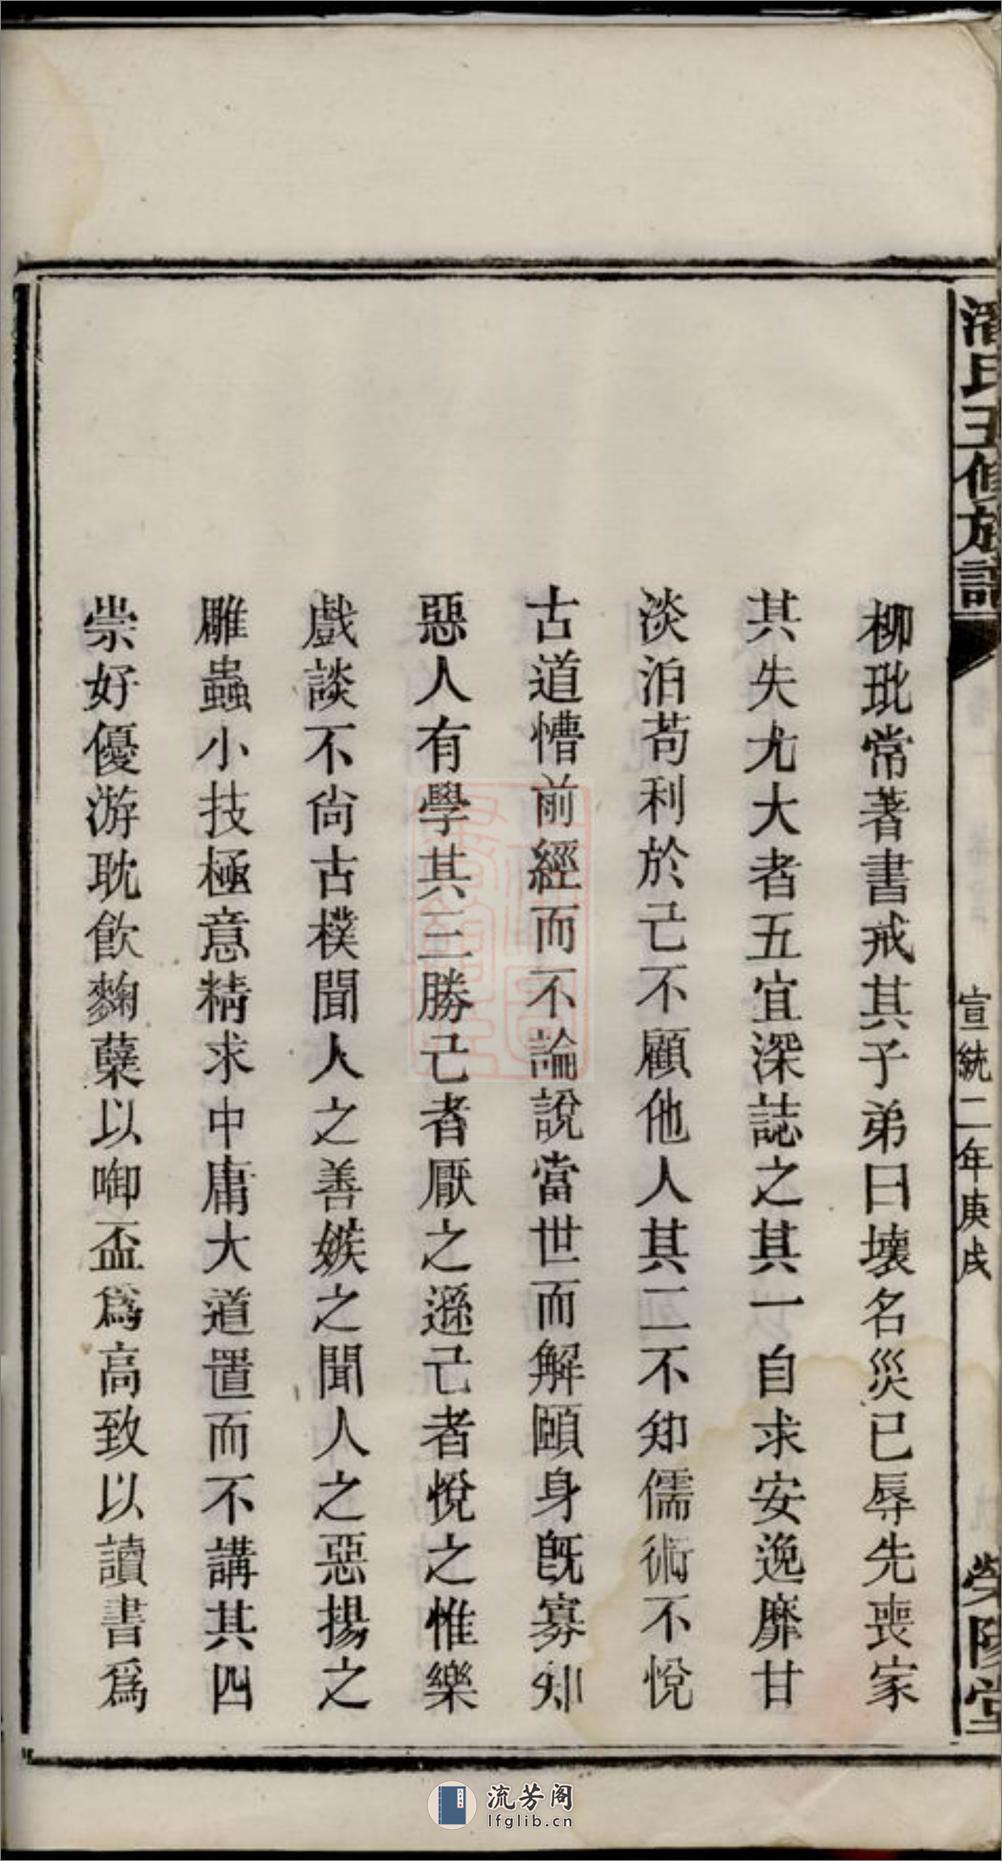 潘氏五修族譜
宣統二年庚戌
滎陽堂
柳玭常著書戒其子弟曰壞名災已辱先喪家
其失尤大者五宜深誌之其一自求安逸靡甘
淡泊苟利於己不顧他人其二不知儒術不悅
古道懵前經而不論說當世而解頤身旣寡知
惡人有學其三勝己者厭之遜己者悅之惟樂
戲談不尙古樸聞人之善嫉之聞人之惡揚之
雕蟲小技極意精求中庸大道置而不講其四
崇好優游耽飲麴櫱以啣盃爲高致以讀書爲
流芳阁
lfglib.cn